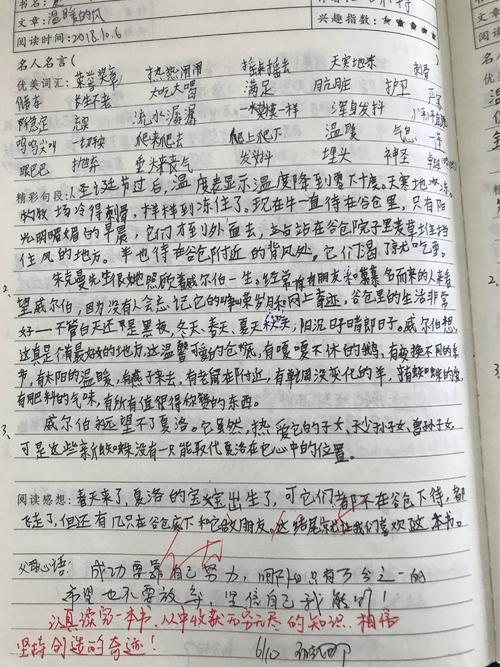 文章：温暖的风
兴趣指数：★★★★★
阅读时间：2018.10.6
名人名言（
优美词汇：荣誉奖章 热热闹闹 摇来摇去 天寒地冻 刺骨
储存 长生不老 大吃大喝 满足 肮脏 护卫
流水潺潺 一模一样 浑身发抖
呜呜尖叫 爬来爬去 爬上爬下 温暖 气息
眼巴巴 抛弃 垂头丧气 发警报 埋头 神圣
精彩句段：人圣诞节过后，温度表显示温度降到零下十度。天寒地冻。
牧场冷得刺骨，样样到冻住了。现在牛一直待在谷仓里，只有阳
光明媚的早晨，它们才到外面去，站在谷仓院子里麦草垛挡
住风的地方。羊也待在谷仓附近的背风处。它们渴了就吃雪。
2. 朱克曼先生很好地照顾着威尔伯一生。经常有朋友和慕名而来的人来看
望威尔伯，因为没有人会忘记它的峥嵘岁月和网上奇迹，谷仓里的生活非常
好——不管白天还是黑夜，冬天、春天、夏天、秋天，阴沉日子晴朗日子。威尔伯想，
这真是个最好的地方，这温馨可爱的仓底，有嘎嘎不休的鹅，有变换不同的季
节，有太阳的温暖，有燕子来去，有老鼠在附近，有单调没变化的羊，有蜘蛛的爱，
有肥料的气味，有所有值得你赞的东西。
3. 威尔伯永远望不了夏洛。它虽然，热爱它的子女、孙子孙女、曾孙子女，
可是这些新蜘蛛没有一只能取代夏洛在它心中的位置。
阅读感想：春天来了，夏洛的宝宝出生了，可它们都不在谷仓下待，都
飞走了，但还有几只在谷仓底下和它做朋友。这结尾就让我们喜欢这本书。
父母心语：成功要靠自己努力，哪怕只有万分之一的
希望也不要放弃，坚信自己我能行！
认真读完一本书，从中收获无穷无尽的知识，相信
坚持创造的奇迹！